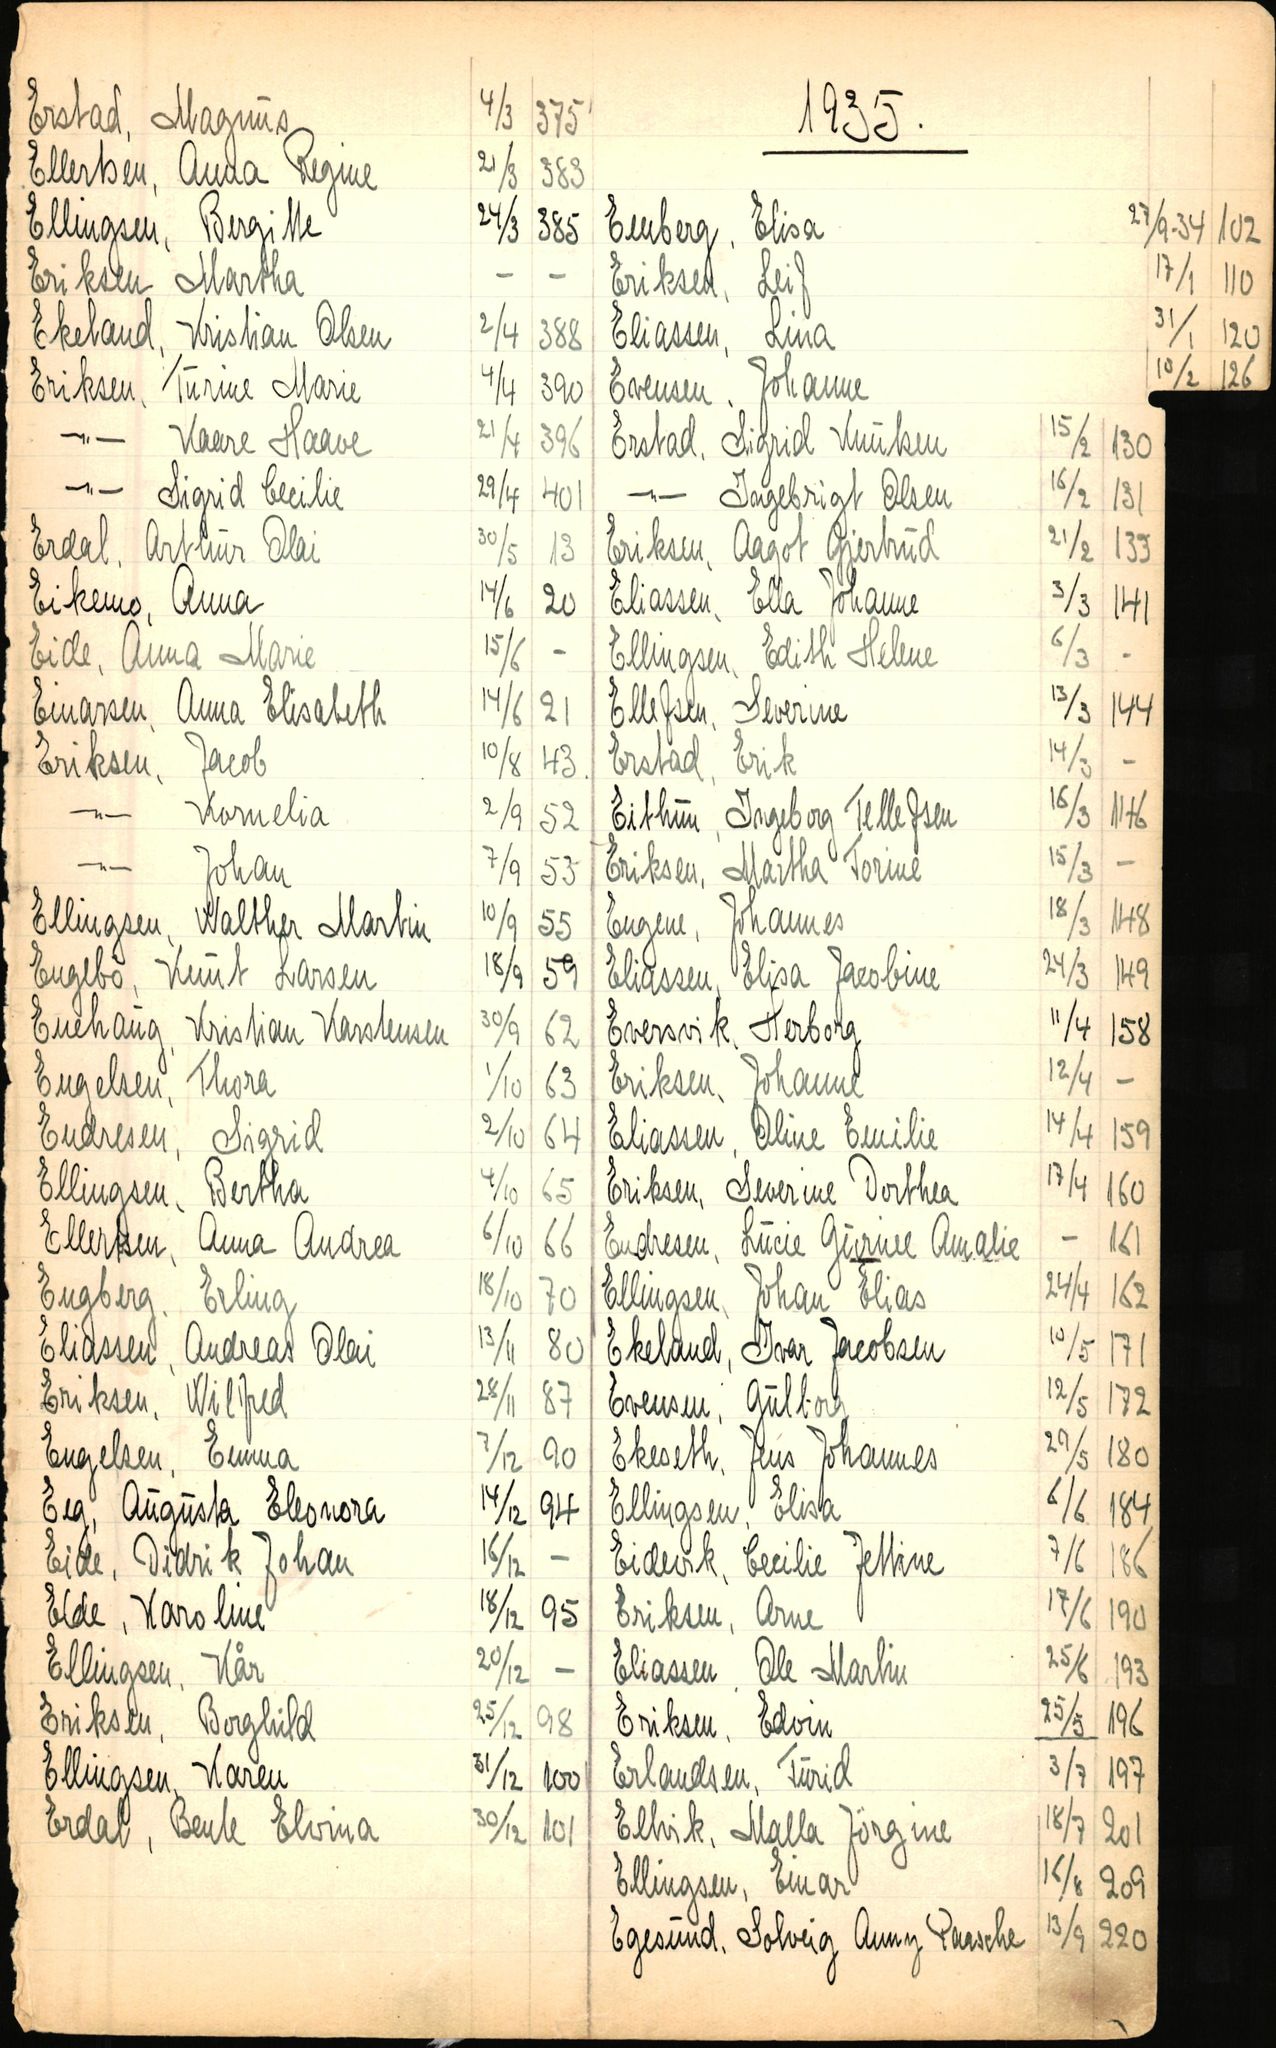 Erstad, Magnus 4/3 375
Ellertsen, Anna Regine 21/3 383
Ellingsen, Bergitte 24/3 385
Eriksen Martha - -
Ekeland, Kristian Olsen 2/4 388
Eriksen, Turine Marie 4/4 390
-"- Kaare Haave 21/4 396
-"- Sigrid Cecilie 29/4 401
Erdal, Arthur Olai 30/5 13
Eikemo, Anna 14/6 20
Eide, Anna Marie 15/6 -
Einarsen, Anna Elisabeth 14/6 21
Eriksen, Jacob 10/8 43
-"- Kornelia 2/9 52
-"- Johan 7/9 53
Ellingsen, Walther Martin 10/9 55
Engebö, Knut Larsen 18/9 59
Enehaug, Kristian Karstensen 30/9 62
Engelsen, Thora 1/10 63
Endresen, Sigrid 2/10 64
Ellingsen, Bertha 4/10 65
Ellertsen, Anna Andrea 6/10 66
Engberg, Erling 18/10 70
Eliassen, Andreas Olai 13/11 80
Eriksen, Wilfred 28/11 87
Engelsen, Emma 7/12 90
Eeg, Augusta Eleonora 14/12 94
Eide, Didrik Johan 16/12 -
Eide, Karoline 18/12 95
Ellingsen, Kår 20/12 -
Eriksen, Borghild 25/12 98
Ellingsen, Karen 31/12 100
Erdal, Bente Elvina 30/12 101
1935.
Eenberg, Elisa 27/9-34 102
Eriksen, Leif 17/1 110
Eliassen, Lina 31/1 120
Evensen, Johanne 10/2 126
Erstad, Sigrid Knutsen 15/2 130
-"- Ingebrigt Olsen 16/2 131
Eriksen, Aagot Gjertrud 21/2 133
Eliassen, Ella Johanne 3/3 141
Ellingsen, Edith Helene 6/3 -
Ellefsen, Severine 13/3 144
Erstad, Erik 14/3 -
Eithun, Ingeborg Tellefsen 16/3 146
Eriksen, Martha Torine 15/3 -
Eugene, Johannes 18/3 148
Eliassen, Elisa Jacobine 24/3 149
Eversvik, Herborg 11/4 158
Eriksen, Johanne 12/4 -
Eliassen, Oline Emilie 14/4 159
Eriksen, Severine Dorthea 17/4 160
Endresen, Lucie Gurinee Amalie - 161
Ellingsen, Johan Elias 24/4 162
Ekeland, Ivar Jacobsen 10/5 171
Evensen, Gulborg 12/5 172
Ekeseth, Jens Johannes 29/5 180
Ellingsen, Elisa 6/6 184
Eidevik, Cecilie Jettine 7/6 186
Eriksen, Arne 17/6 190
Eliassen, Ole Martin 25/6 193
Eriksen, Edvin 25/5 196
Erlandsen, Turid 3/7 197
Ellvik, Malla Jörgine 18/7 201
Ellingsen, Einar 16/8 209
Egesund, Solveig Anny Paasche 13/9 220